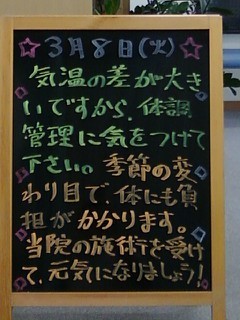 ☆3月8日(火)☆
気温の差が大き
いですから、体調
管理に気をつけて
下さい。季節の変
わり目で、体にも負
担がかかります。
当院の施術を受け
て、元気になりましょう!